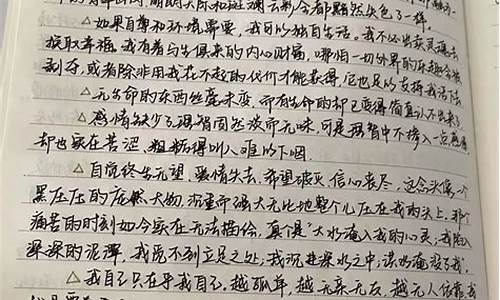 晴朗的天际和斑斓云彩会都黯然失色了一样。
△如果自尊和环境需要，我可以独自生活。我不必出卖灵魂去
换取幸福。我有着与生俱来的内心财富，哪怕一切外界的乐趣会被
剥夺，或者除非用我付不起的代价才能获得，它也足以支持我活下去
△无生命的东西丝毫未变，而有生命的却已变得简直认不出来了
△感情缺少了理智固然淡而无味，可是理智中不掺入一点感情
却也实在苦涩、粗糙得叫人难以下咽。
△自觉终生无望，爱情失去，希望破灭，信心丧尽，这念头像一个
黑压压的庞然大物，沉重而强大无比地整个儿压在我的头上，那个
痛苦的时刻如今实在无法描绘，真个是“大水淹入我的心灵，我陷入
深深的泥潭，我觅不到立足之处；我沉进深水之中；洪水淹没了我。
△我自己在乎我自己，越孤单，越无亲无友，越无人依靠